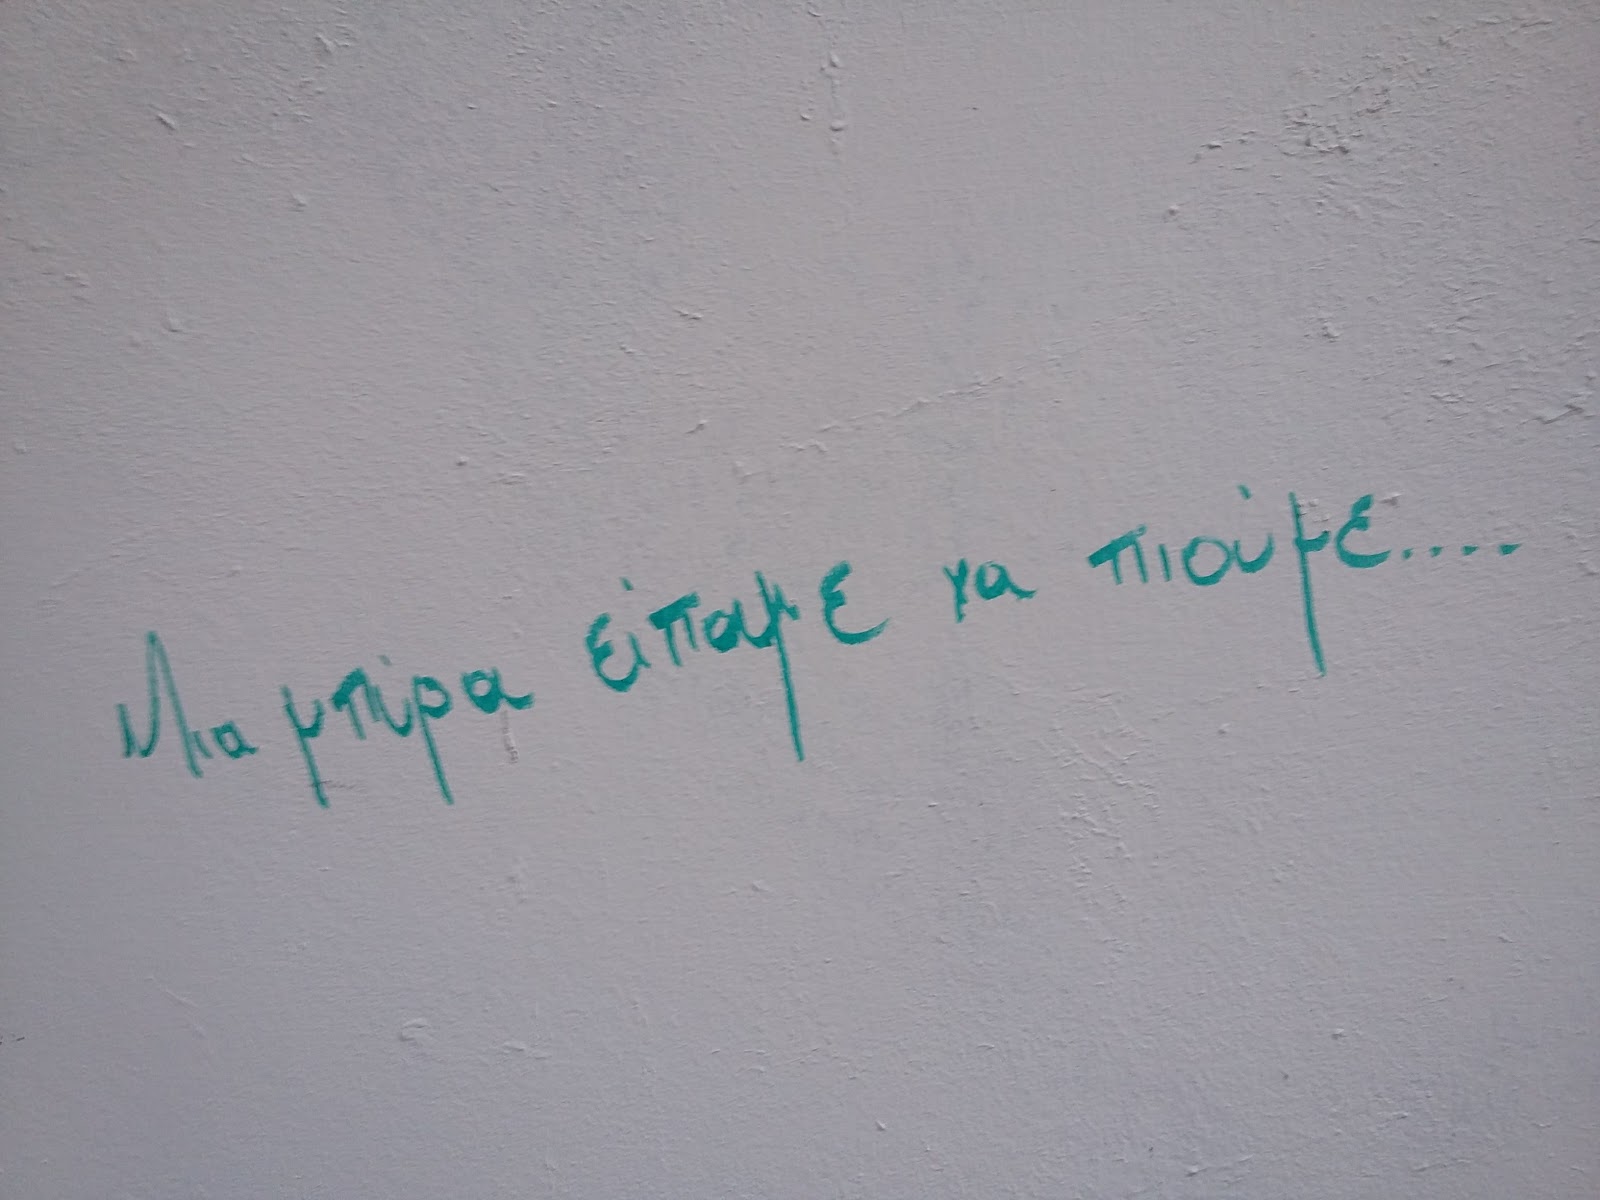 Μια μπίρα είπαμε να πιούμε....